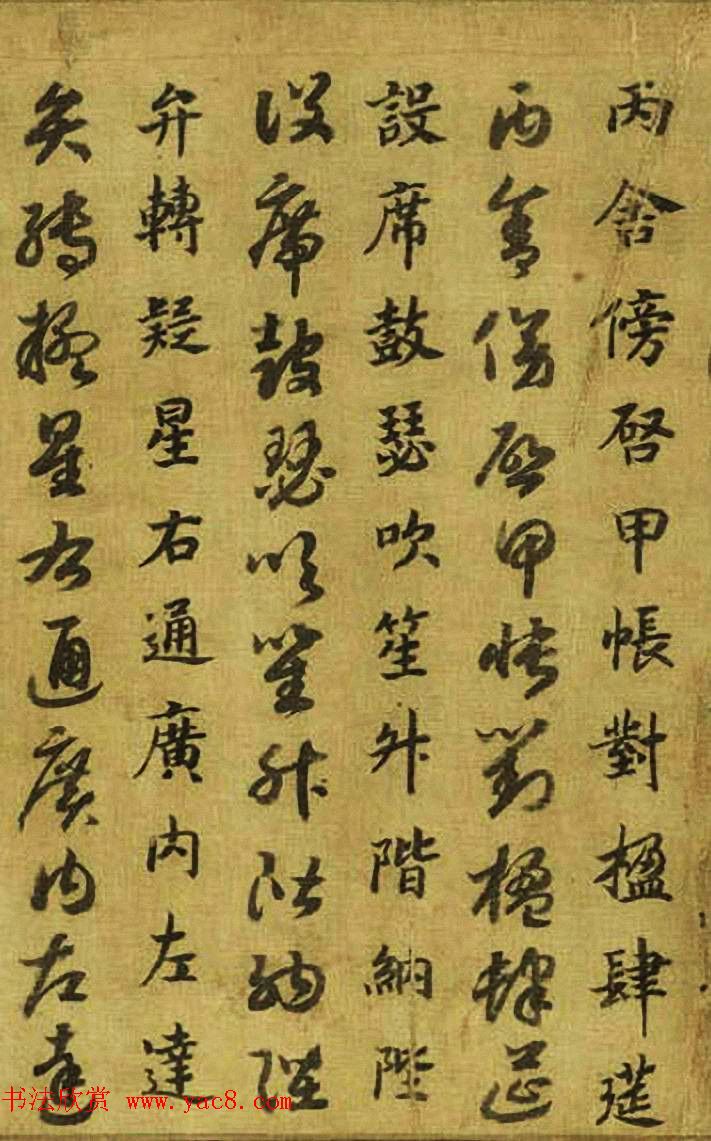 丙舍傍啓甲帳對楹肆筵
丙舍傍啓甲帳對楹肆筵
設席鼓瑟吹笙升階納陛
設席鼓瑟吹笙升階納陛
弁轉疑星右通廣內左達
弁轉疑星右通廣內左達
书法欣赏 www.yac8.com